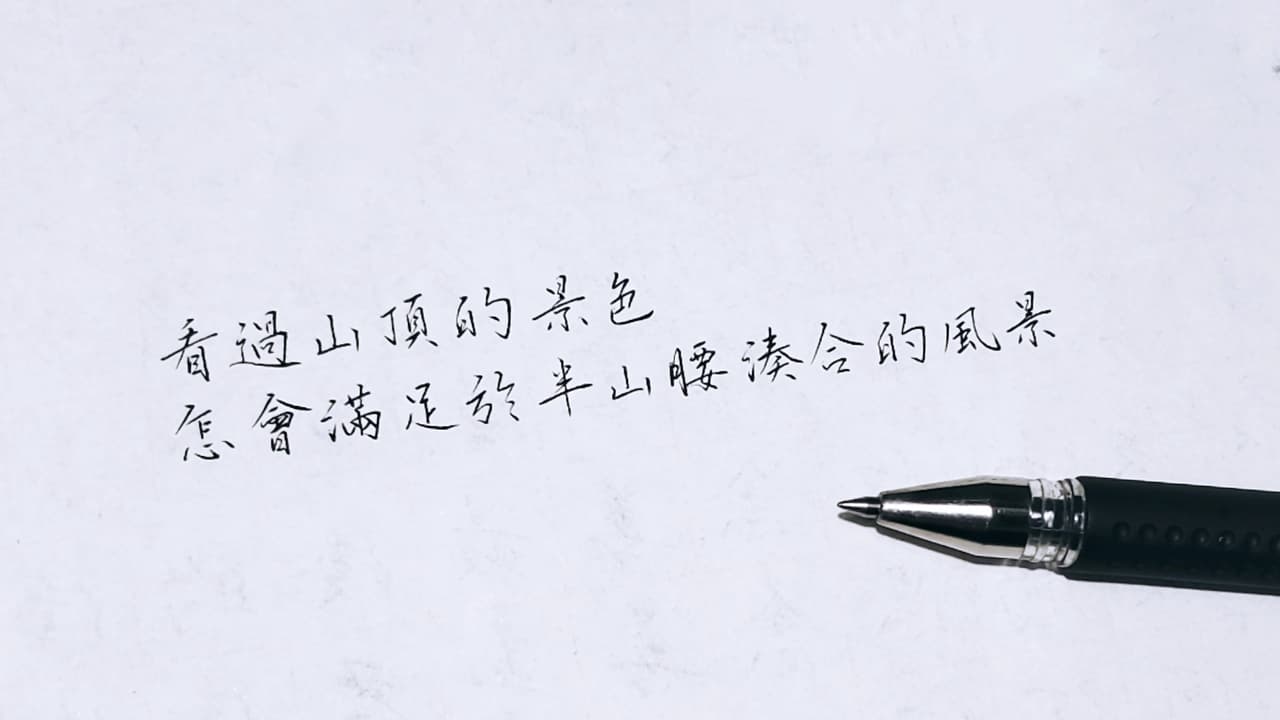 看過山頂的景色
怎會滿足於半山腰湊合的風景